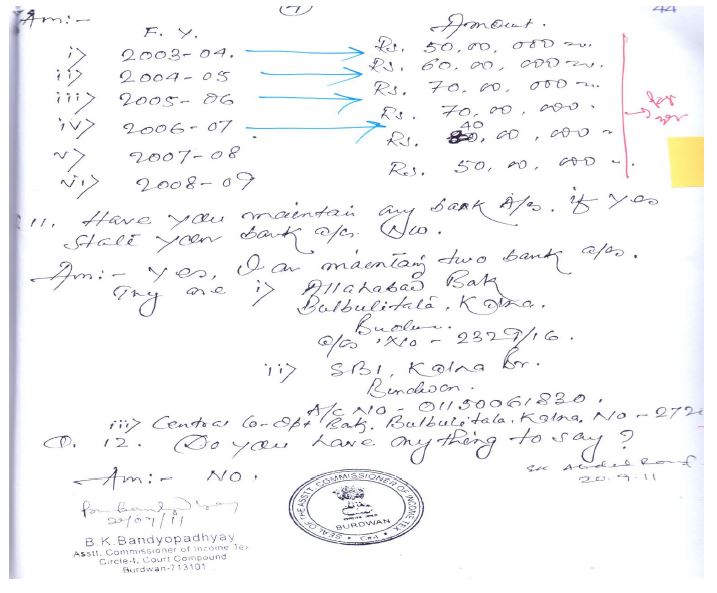 7
44
Am :-
F. Y.
Amount.
i> 2003-04. Rs. 50,00,000
ii> 2004-05 Rs. 60,00,000
iii> 2005-06 Rs. 70,00,000
iv> 2006-07 Rs. 70,00,000
v> 2007-08 Rs. 40,00,000
vi> 2008-09 Rs. 50,00,000
11. Have you maintain any bank A/cs. if yes
state your bank a/cs. No.
Am :- Yes, I am maentang two bank a/cs.
Thy are i> Allahabad Bak
Bulbulitala, Kalna.
a/cs No - 2329/16.
ii> SBI, Kalna Br.
Burdwan.
A/C NO - 01150061830.
iii> Central Co-Opt Bak, Bulbulitala, Kalna, No - 272
Q. 12. Do you have anything to say ?
Am :- NO.
20.9.11
20/09/11
B.K.Bandyopadhyay
Asstt. Commissioner of Income Tax
Circle-1, Court Compound
Burdwan-713101
SEAL OF THE ASSTT. COMMISSIONER OF INCOME TAX
BURDWAN